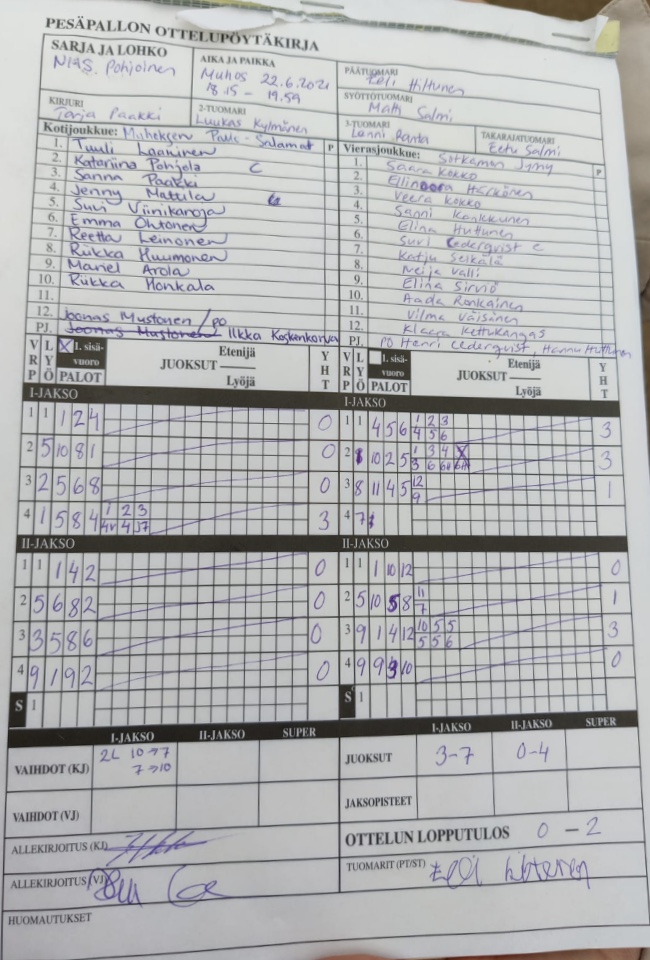 PESÄPALLON OTTELUPÖYTÄKIRJA
SARJA JA LOHKO
AIKA JA PAIKKA
PÄÄTUOMARI
Pohjoinen
Muhos 22.6.2021
18.15 - 19.59
Eeli Hiltunen
SYÖTTÖTUOMARI
Salmi
KIRJURI
Tarja Paakki
2-TUOMARI
Luukas Kylmänen
3-TUOMARI
Lenni Ranta
TAKARAJATUOMARI
Eetu Salmi
Kotijoukkue: Muhoksen Pallo-Salamat P
1. Tuuli Laaninen
2. Katariina Pohjola C
3. Sanna Paakki
4. Jenny Mattila
5. Suvi Viinikanoja
6. Emma Ohtonen
7. Reetta Leinonen
8. Riikka Huumonen
9. Arola
10. Riikka Honkala
11.
12. Joonas Mustonen / PO
PJ. Joonas Mustonen Ilkka Koskenkorva
Vierasjoukkue: Sotkamon Jymy P
1. Saara Kokko
2. Ellinoora Härkönen
3. Veera Kokko
4. Sanni
5. Elina Huttunen
6. Suvi Cederqvist C
7. Katju Seikälä
8. Neija Valli
9. Elina Sirviö
10. Aada Ronkainen
11. Vilma Väisänen
12. Klaara Kettukangas
PJ. PO Henri Cederqvist, Hannu Huttunen
V R P L Y Ö X 1. sisävuoro PALOT JUOKSUT Etenijä Lyöjä Y H T
V R P L Y Ö 1. sisävuoro PALOT JUOKSUT Etenijä Lyöjä Y H T
I-JAKSO
1 1 1 2 4 0
2 5 10 8 1 0
3 2 5 6 8 0
4 1 5 8 4 1 2 3 3
I-JAKSO
1 1 4 5 6 1 2 3 3
4 5 6
2 8 10 2 5 1 3 4 3
3 8 11 4 5 12 1
9
4 7
II-JAKSO
1 1 1 4 2 0
2 5 6 8 2 0
3 3 5 8 6 0
4 9 1 9 2 0
S 1
II-JAKSO
1 1 1 10 12 0
2 5 10 5 8 11 1
7
3 9 1 4 12 10 5 5 3
5 5 6
4 9 9 3 10 0
S 1
I-JAKSO II-JAKSO SUPER
VAIHDOT (KJ) 2L 10→7
7→10
VAIHDOT (VJ)
I-JAKSO II-JAKSO SUPER
JUOKSUT 3-7 0-4
JAKSOPISTEET
OTTELUN LOPPUTULOS 0 - 2
ALLEKIRJOITUS (KJ)
ALLEKIRJOITUS (VJ)
TUOMARIT (PT/ST) Eeli Hiltunen
HUOMAUTUKSET